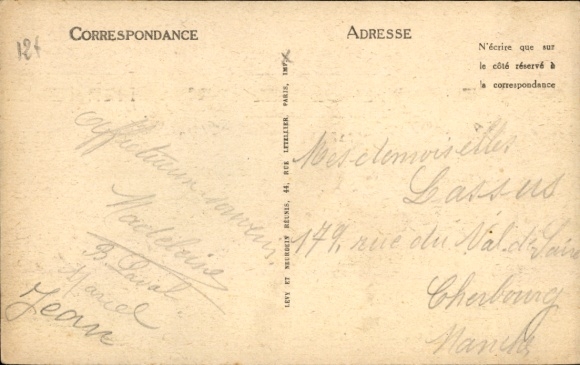 12f
CORRESPONDANCE
Affectueux souvenir
Madeleine
Marcel
Jean
LEVY ET NEURDEIN RÉUNIS, 44, RUE LETELLIER, PARIS, IMP
ADRESSE
N'écrire que sur
le côté réservé à
la correspondance
Mesdemoiselles
Lassus
179, rue du Val de Saire
Cherbourg
Manche